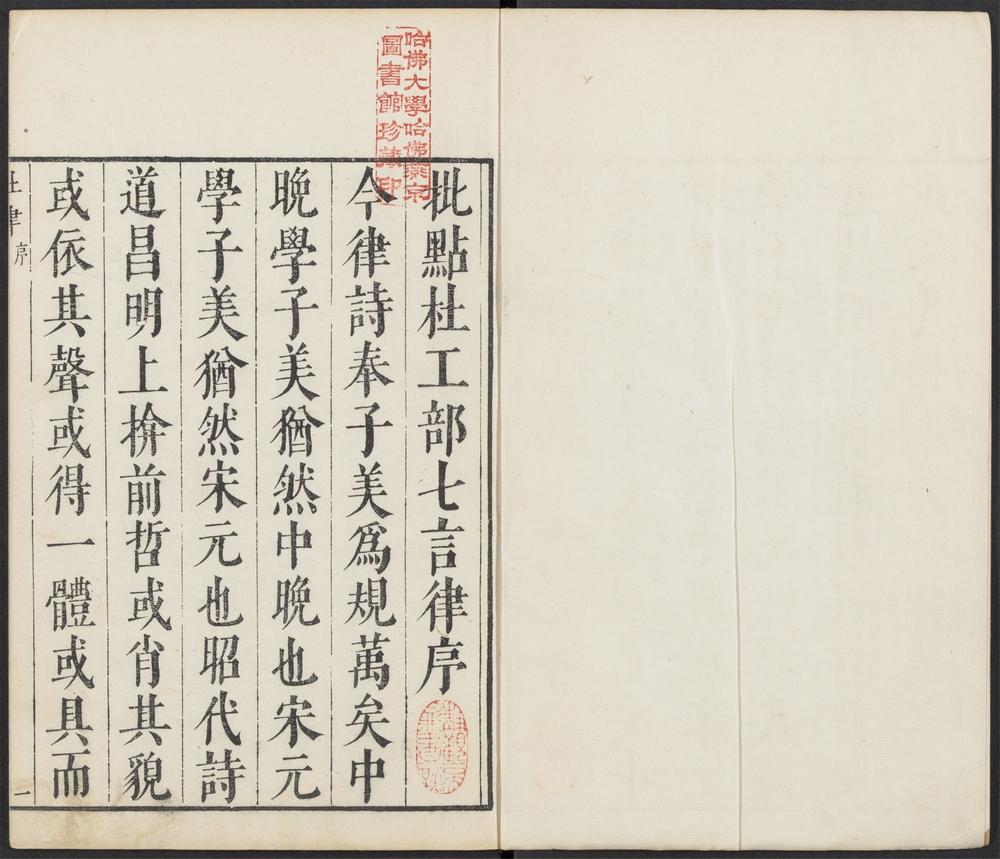 哈佛大學哈佛燕京
圖書館珍藏印
批點杜工部七言律序
今律詩奉子美爲規萬矣中
晚學子美猶然中晚也宋元
學子美猶然宋元也昭代詩
道昌明上揜前哲或肖其貌
或依其聲或得一體或具而
杜律序
一